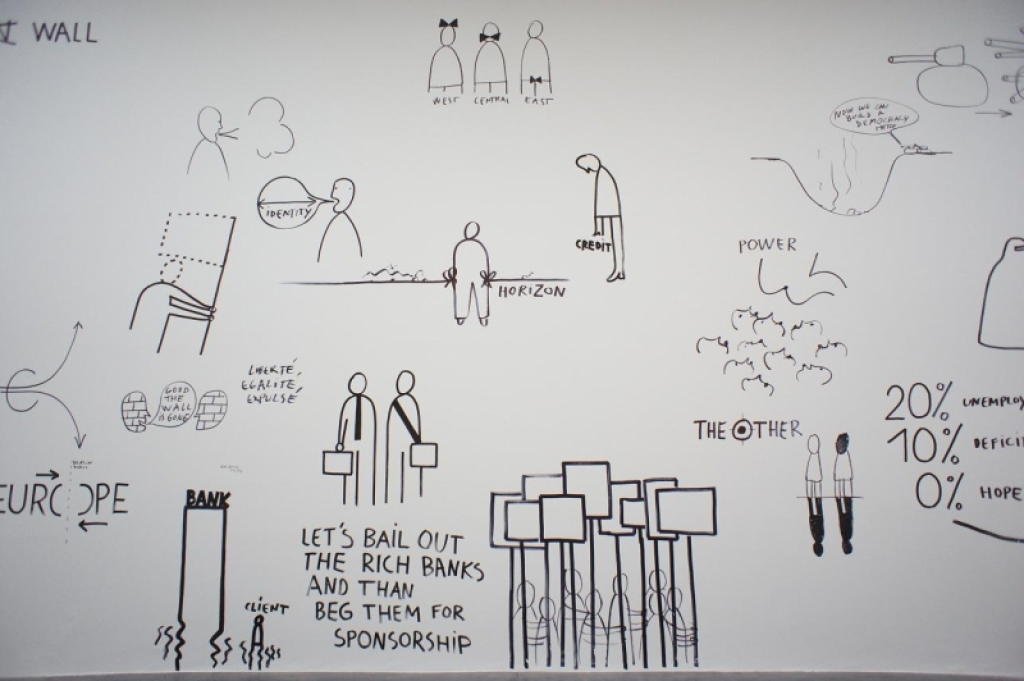 WALL
WEST CENTRAL EAST
NOW WE CAN
BUILD A
DEMOCRACY
HERE
IDENTITY
CREDIT
POWER
HORIZON
LIBERTÉ,
EGALITÉ,
EXPULSÉ
GOOD
THE
WALL
IS GONE
THE OTHER
20% UNEMPLOY
10% DEFICI
0% HOPE
EUROPE
BANK
CLIENT
LET'S BAIL OUT
THE RICH BANKS
AND THAN
BEG THEM FOR
SPONSORSHIP